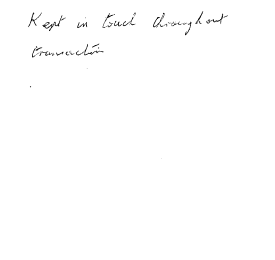 Kept in touch throughout
transaction
.